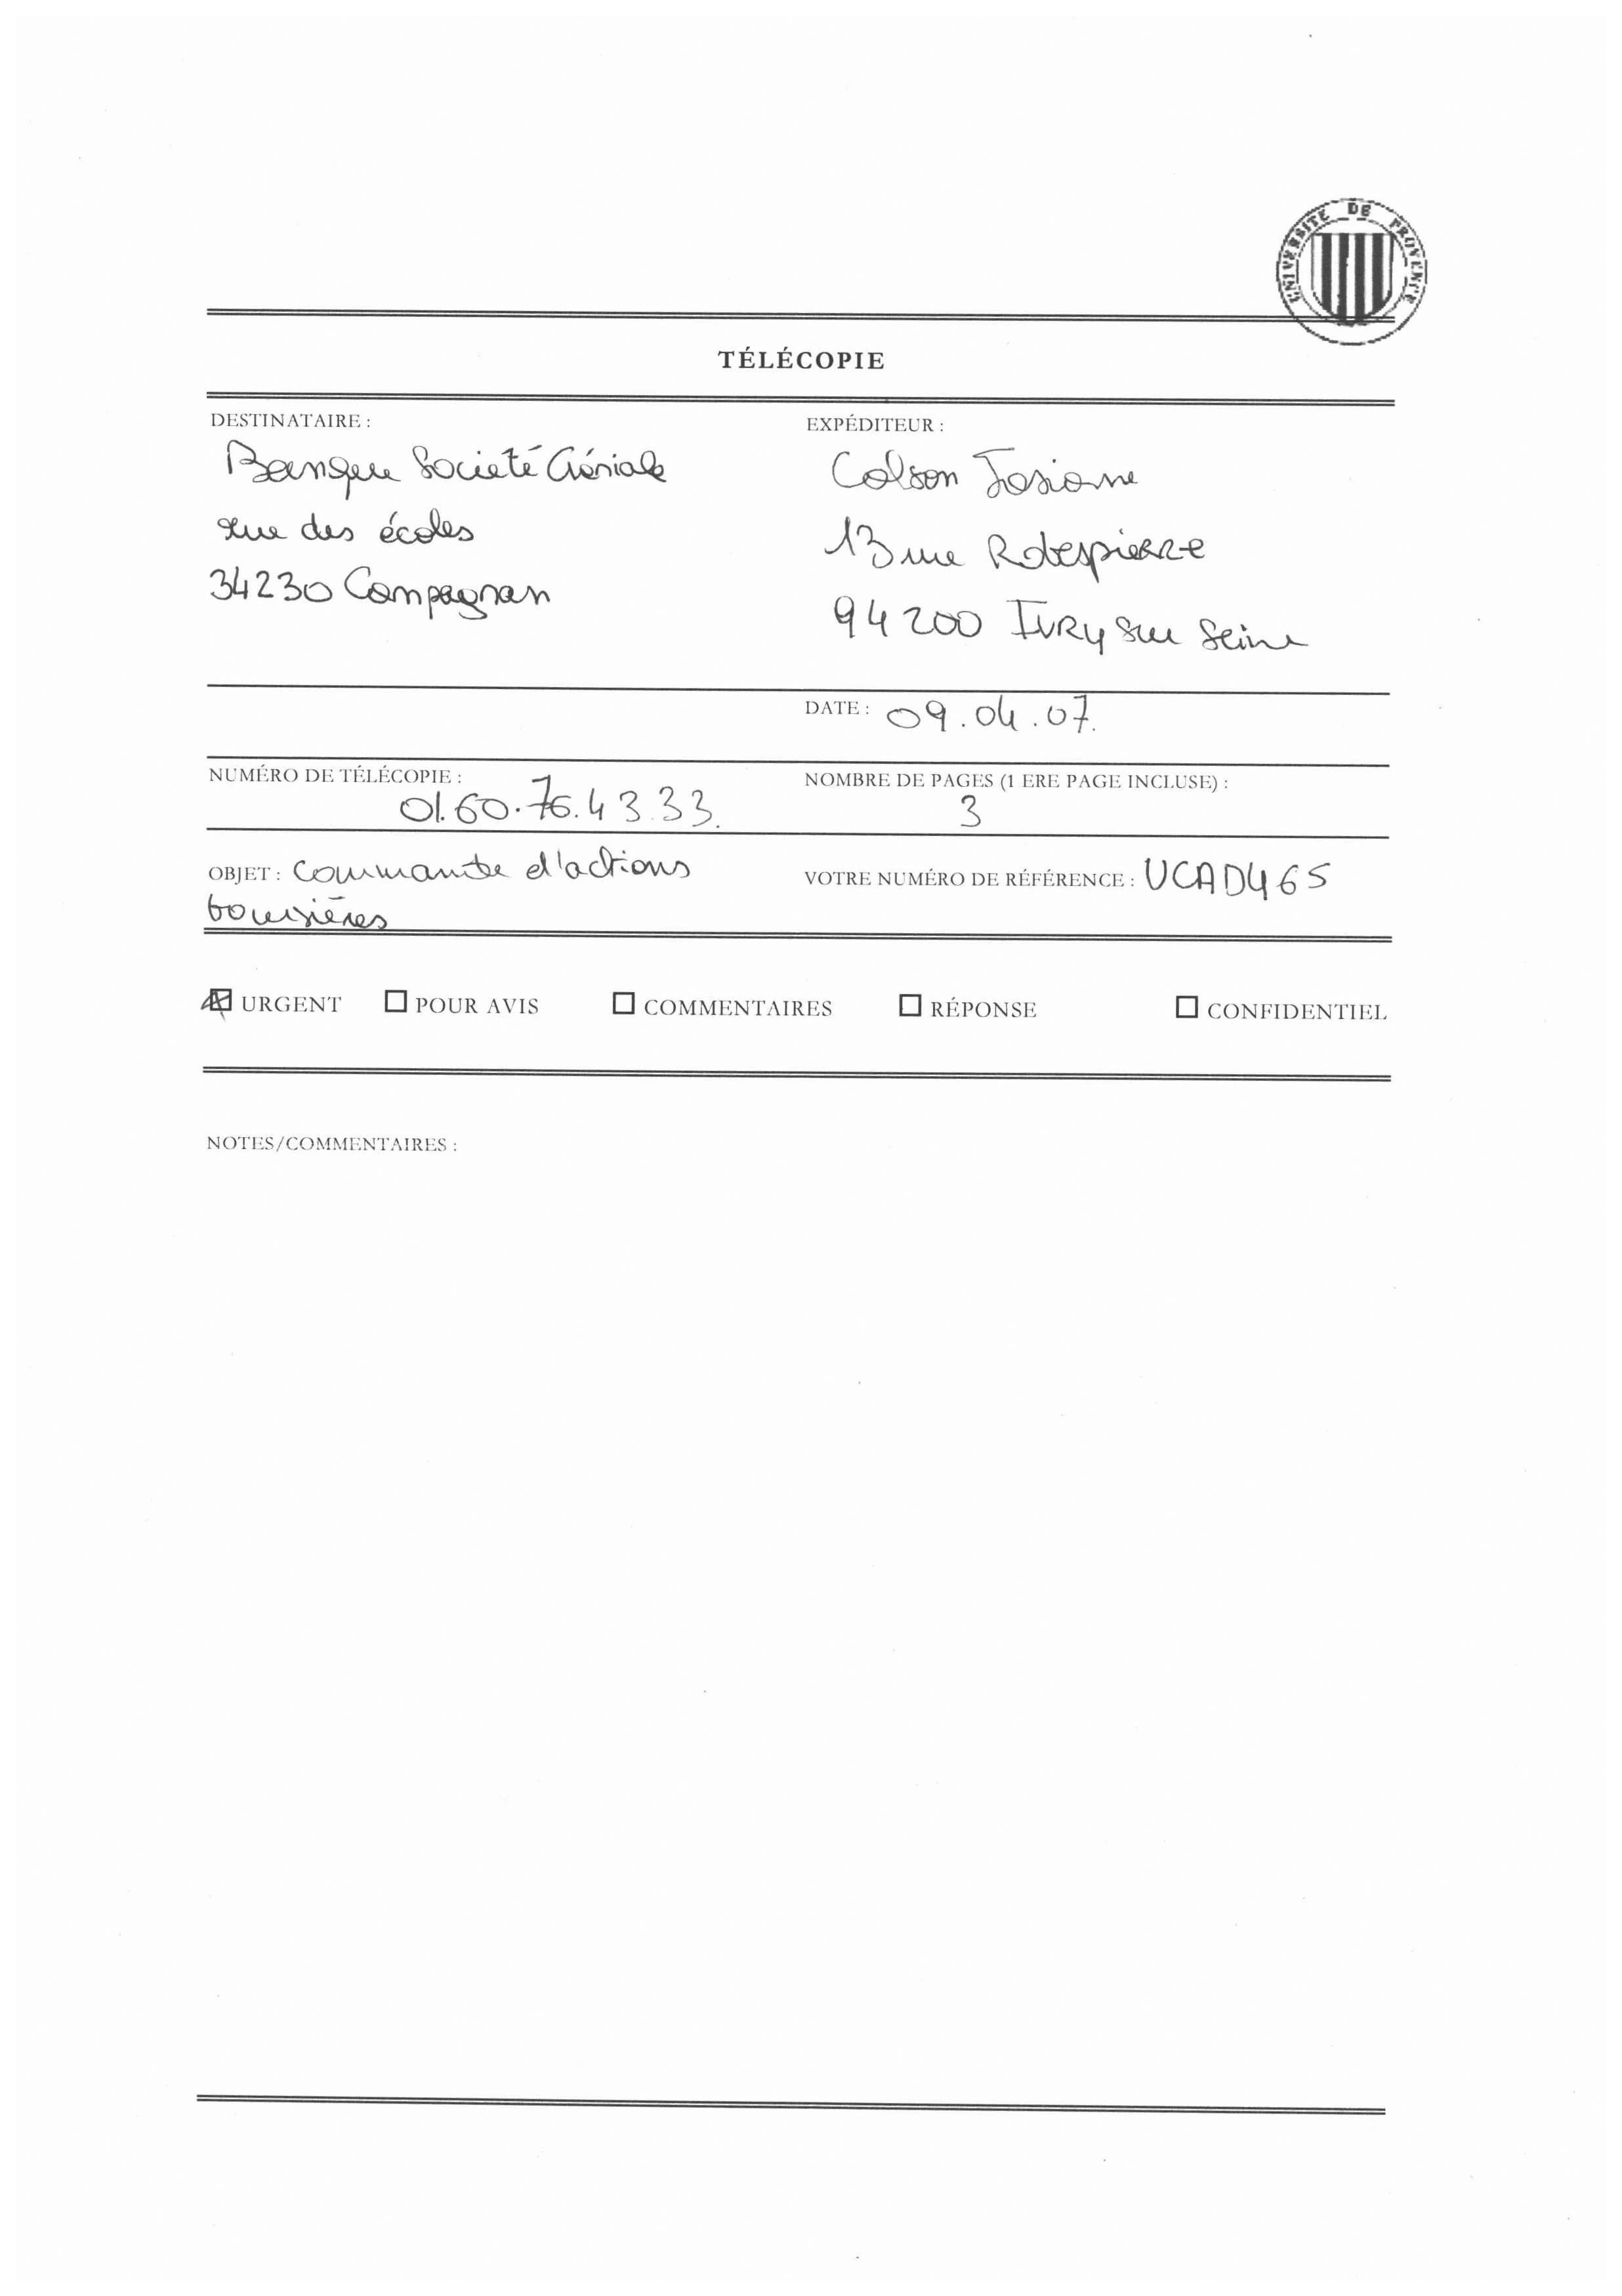 UNIVERSITE DE PROVENCE
TÉLÉCOPIE
DESTINATAIRE :
Banque Société Géniale
rue des écoles
34230 Campagnan
EXPÉDITEUR :
Colson Josiane
13 rue Robespierre
94200 IVRY sur Seine
DATE : 09.04.07.
NUMÉRO DE TÉLÉCOPIE :
01.60.76.43.33.
NOMBRE DE PAGES (1 ERE PAGE INCLUSE) :
3
OBJET : Commande d'actions
boursières
VOTRE NUMÉRO DE RÉFÉRENCE : UCAD465
URGENT POUR AVIS COMMENTAIRES RÉPONSE CONFIDENTIEL
NOTES/COMMENTAIRES :